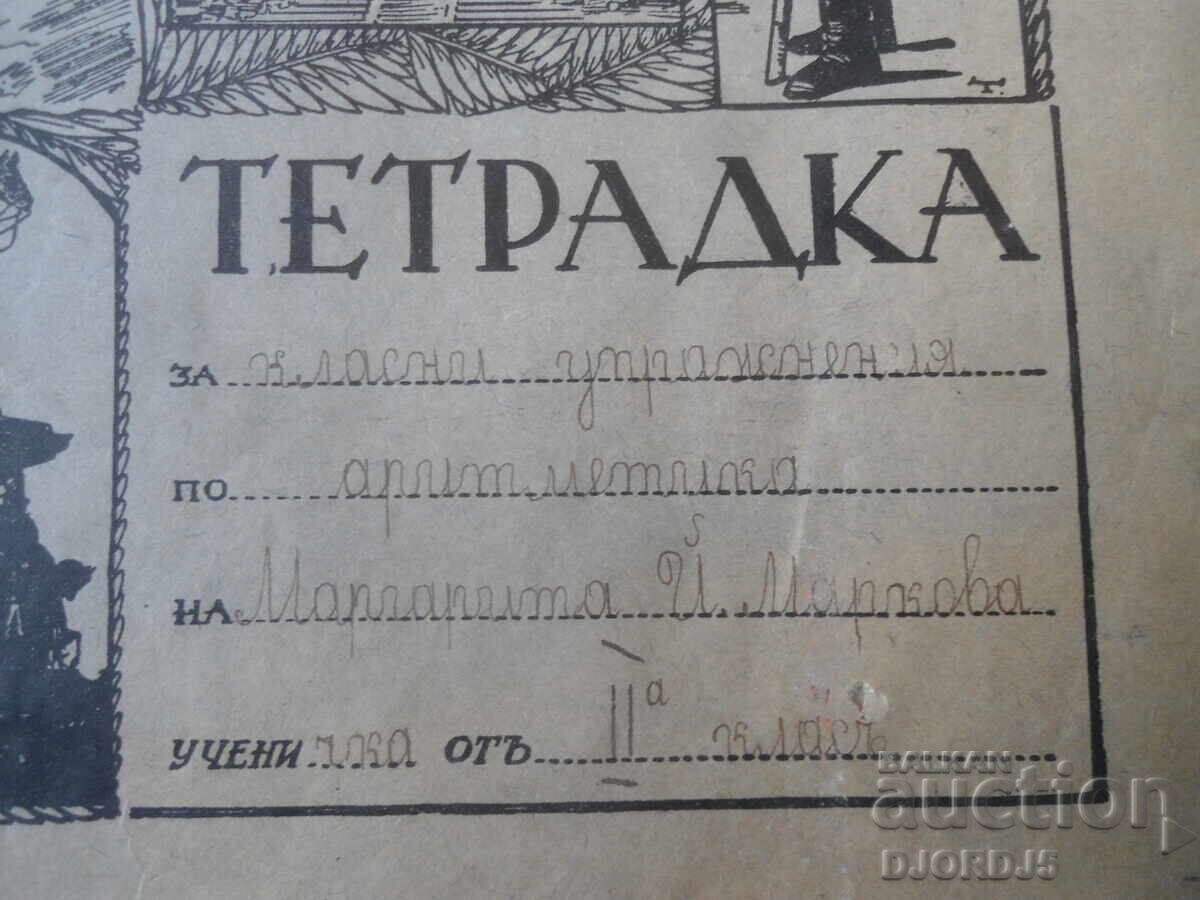 Т.
ТЕТРАДКА
за класни упражнения
по аритметика
на Маргарита Й. Маркова
учени чка отъ IIа класъ
BALKAN
auction
DJORDJ5